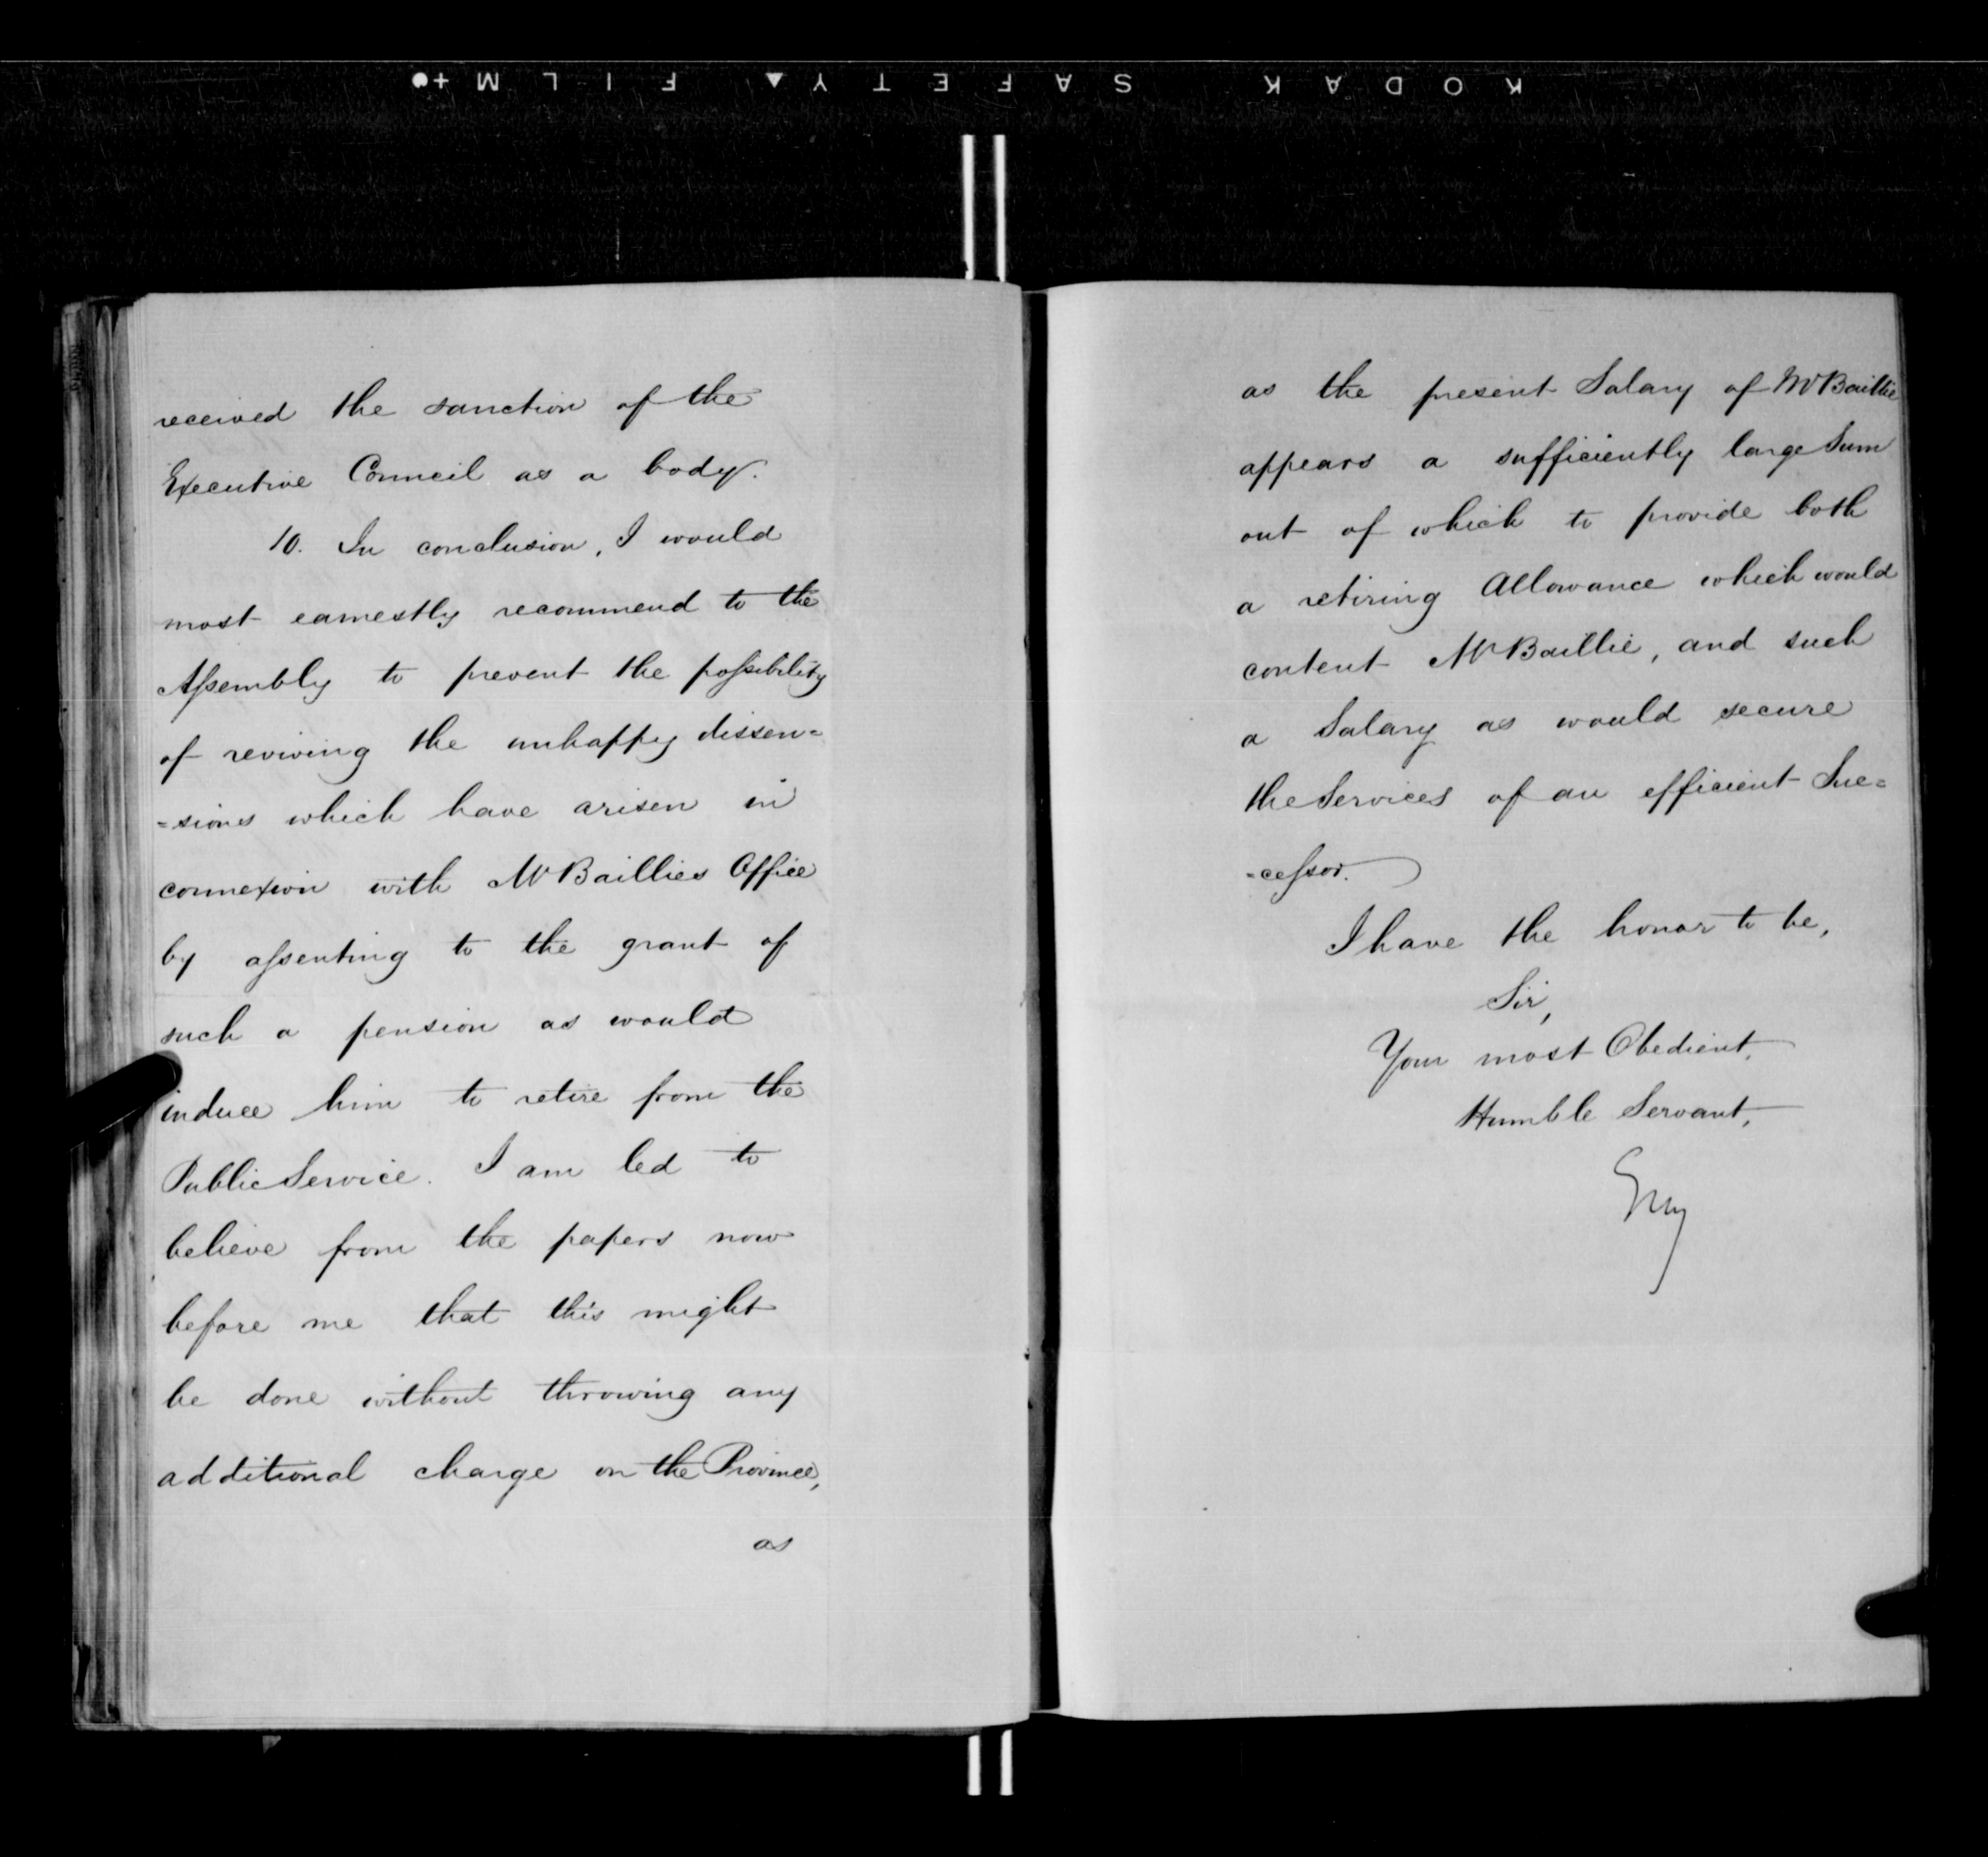 KODAK SAFETY▲ FILM+●
received the sanction of the
Executive Council as a body.
10. In conclusion, I would
most earnestly recommend to the
Assembly to prevent the possibility
of reviving the unhappy dissen=
=sions which have arisen in
connexion with Mr Baillies Office
by assenting to the grant of
such a pension as would
induce him to retire from the
Public Service. I am led to
believe from the papers now
before me that this might
be done without throwing any
additional charge on the Province,
as
as the present Salary of Mr Baillie
appears a sufficiently large Sum
out of which to provide both
a retiring Allowance which would
content Mr Baillie, and such
a Salary as would secure
the Services of an efficient Suc=
=cessor.
I have the honor to be,
Sir,
Your most Obedient,
Humble Servant,
Grey